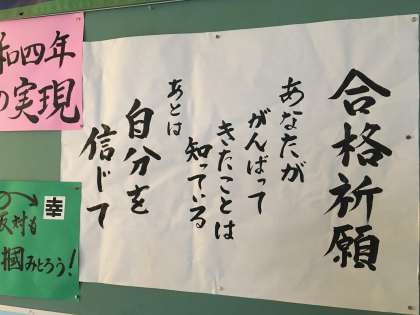 合格祈願
あなたが
がんばって
きたことは
知っている
あとは
自分を
信じて
和四年
の実現
幸
反対も
掴みとろう!